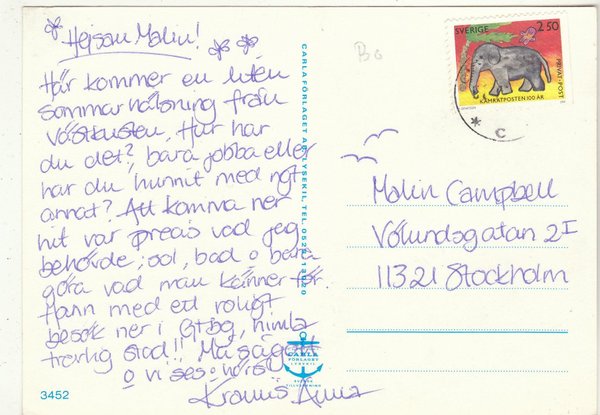 Hejsan Malin!
Här kommer en liten
sommarhälsning från
västkusten, Hur har
du det? bara jobba eller
har du hunnit med ngt
annat? Att komma ner
hit var precis vad jag
behövde; sol, bad o bara
göra vad man känner för.
Hann med ett roligt
besök ner i Gtbg, himla
trevlig stad!! Må så gott
o vi ses o hörs!
Kramis Anna
3452
CARLA FÖRLAGET AB, LYSEKIL, TEL. 0523-13020
CARLA
FÖRLAGET
LYSEKIL
SVENSK
TILLVERKNING
B6
SVERIGE 2 50
PRIVATPOST
KAMRATPOSTEN 100 ÅR
C
Malin Campbell
Völundsgatan 2 I
113 21 Stockholm